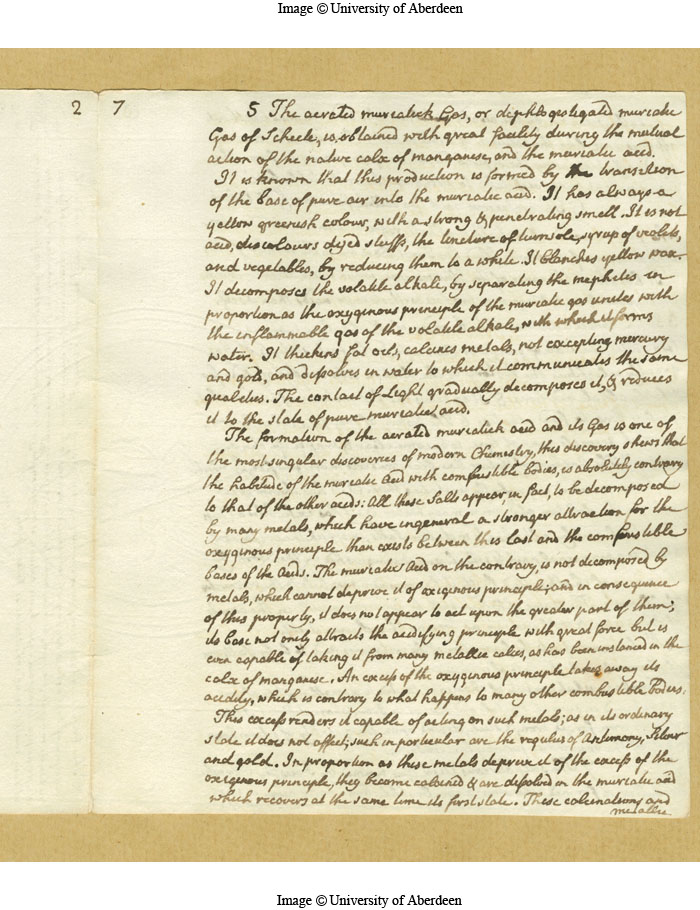 Image © University of Aberdeen
2 7
5 The aerated muriatick Gas, or dephlogisticated muriatic
Gas of Scheele, is obtained with great facility during the mutual
action of the native calx of manganese, and the muriatic acid.
It is known that this production is formed by the transition
of the base of pure air into the muriatic acid. It has always a
yellow greenish colour, with a strong & penetrating smell. It is not
acid, discolours dyed stuffs, the tincture of turnsole, syrup of violets,
and vegetables, by reducing them to a white. It blanches yellow wax.
It decomposes the volatile alkale, by separating the mephitis in
proportion as the oxyginous principle of the muriatic gas unites with
the inflammable gas of the volatile alkale, with which it forms
water. It thickens fat oils, calcines metals, not excepting mercury
and gold, and dissolves in water to which it communicates the same
qualities. The contact of Light gradually decomposes it, & reduces
it to the state of pure muriatic acid.
The formation of the aerated muriatick acid and its Gas is one of
the most singular discoveries of modern Chemistry, this discovery shews that
the habitude of the muriatic Acid with combustible bodies, is absolutely contrary
to that of the other acids: All these Salts appear in fact, to be decomposed
by many metals, which have in general a stronger attraction for the
oxyginous principle than exists between this last and the combustible
bases of the Acids. The muriatic Acid on the contrary, is not decomposed by
metals, which cannot deprive it of oxiginous principle; and in consequence
of this property, it does not appear to act upon the greater part of them;
its base not only attracts the acidifying principle with great force but is
even capable of taking it from many metallic calces, as has been instanced in the
calx of manganese. An excess of the oxyginous principle takes away its
acidity, which is contrary to what happens to many other combustible bodies.
This excess renders it capable of acting on such metals; as in its ordinary
state it does not affect; such in particular are the regulus of Antimony, Silver
and gold. In proportion as these metals deprive it of the excess of the
oxiginous principle, they become calcined & are dissolved in the muriatic acid
which recovers at the same time its first state. These calcinations and
metallic
Image © University of Aberdeen